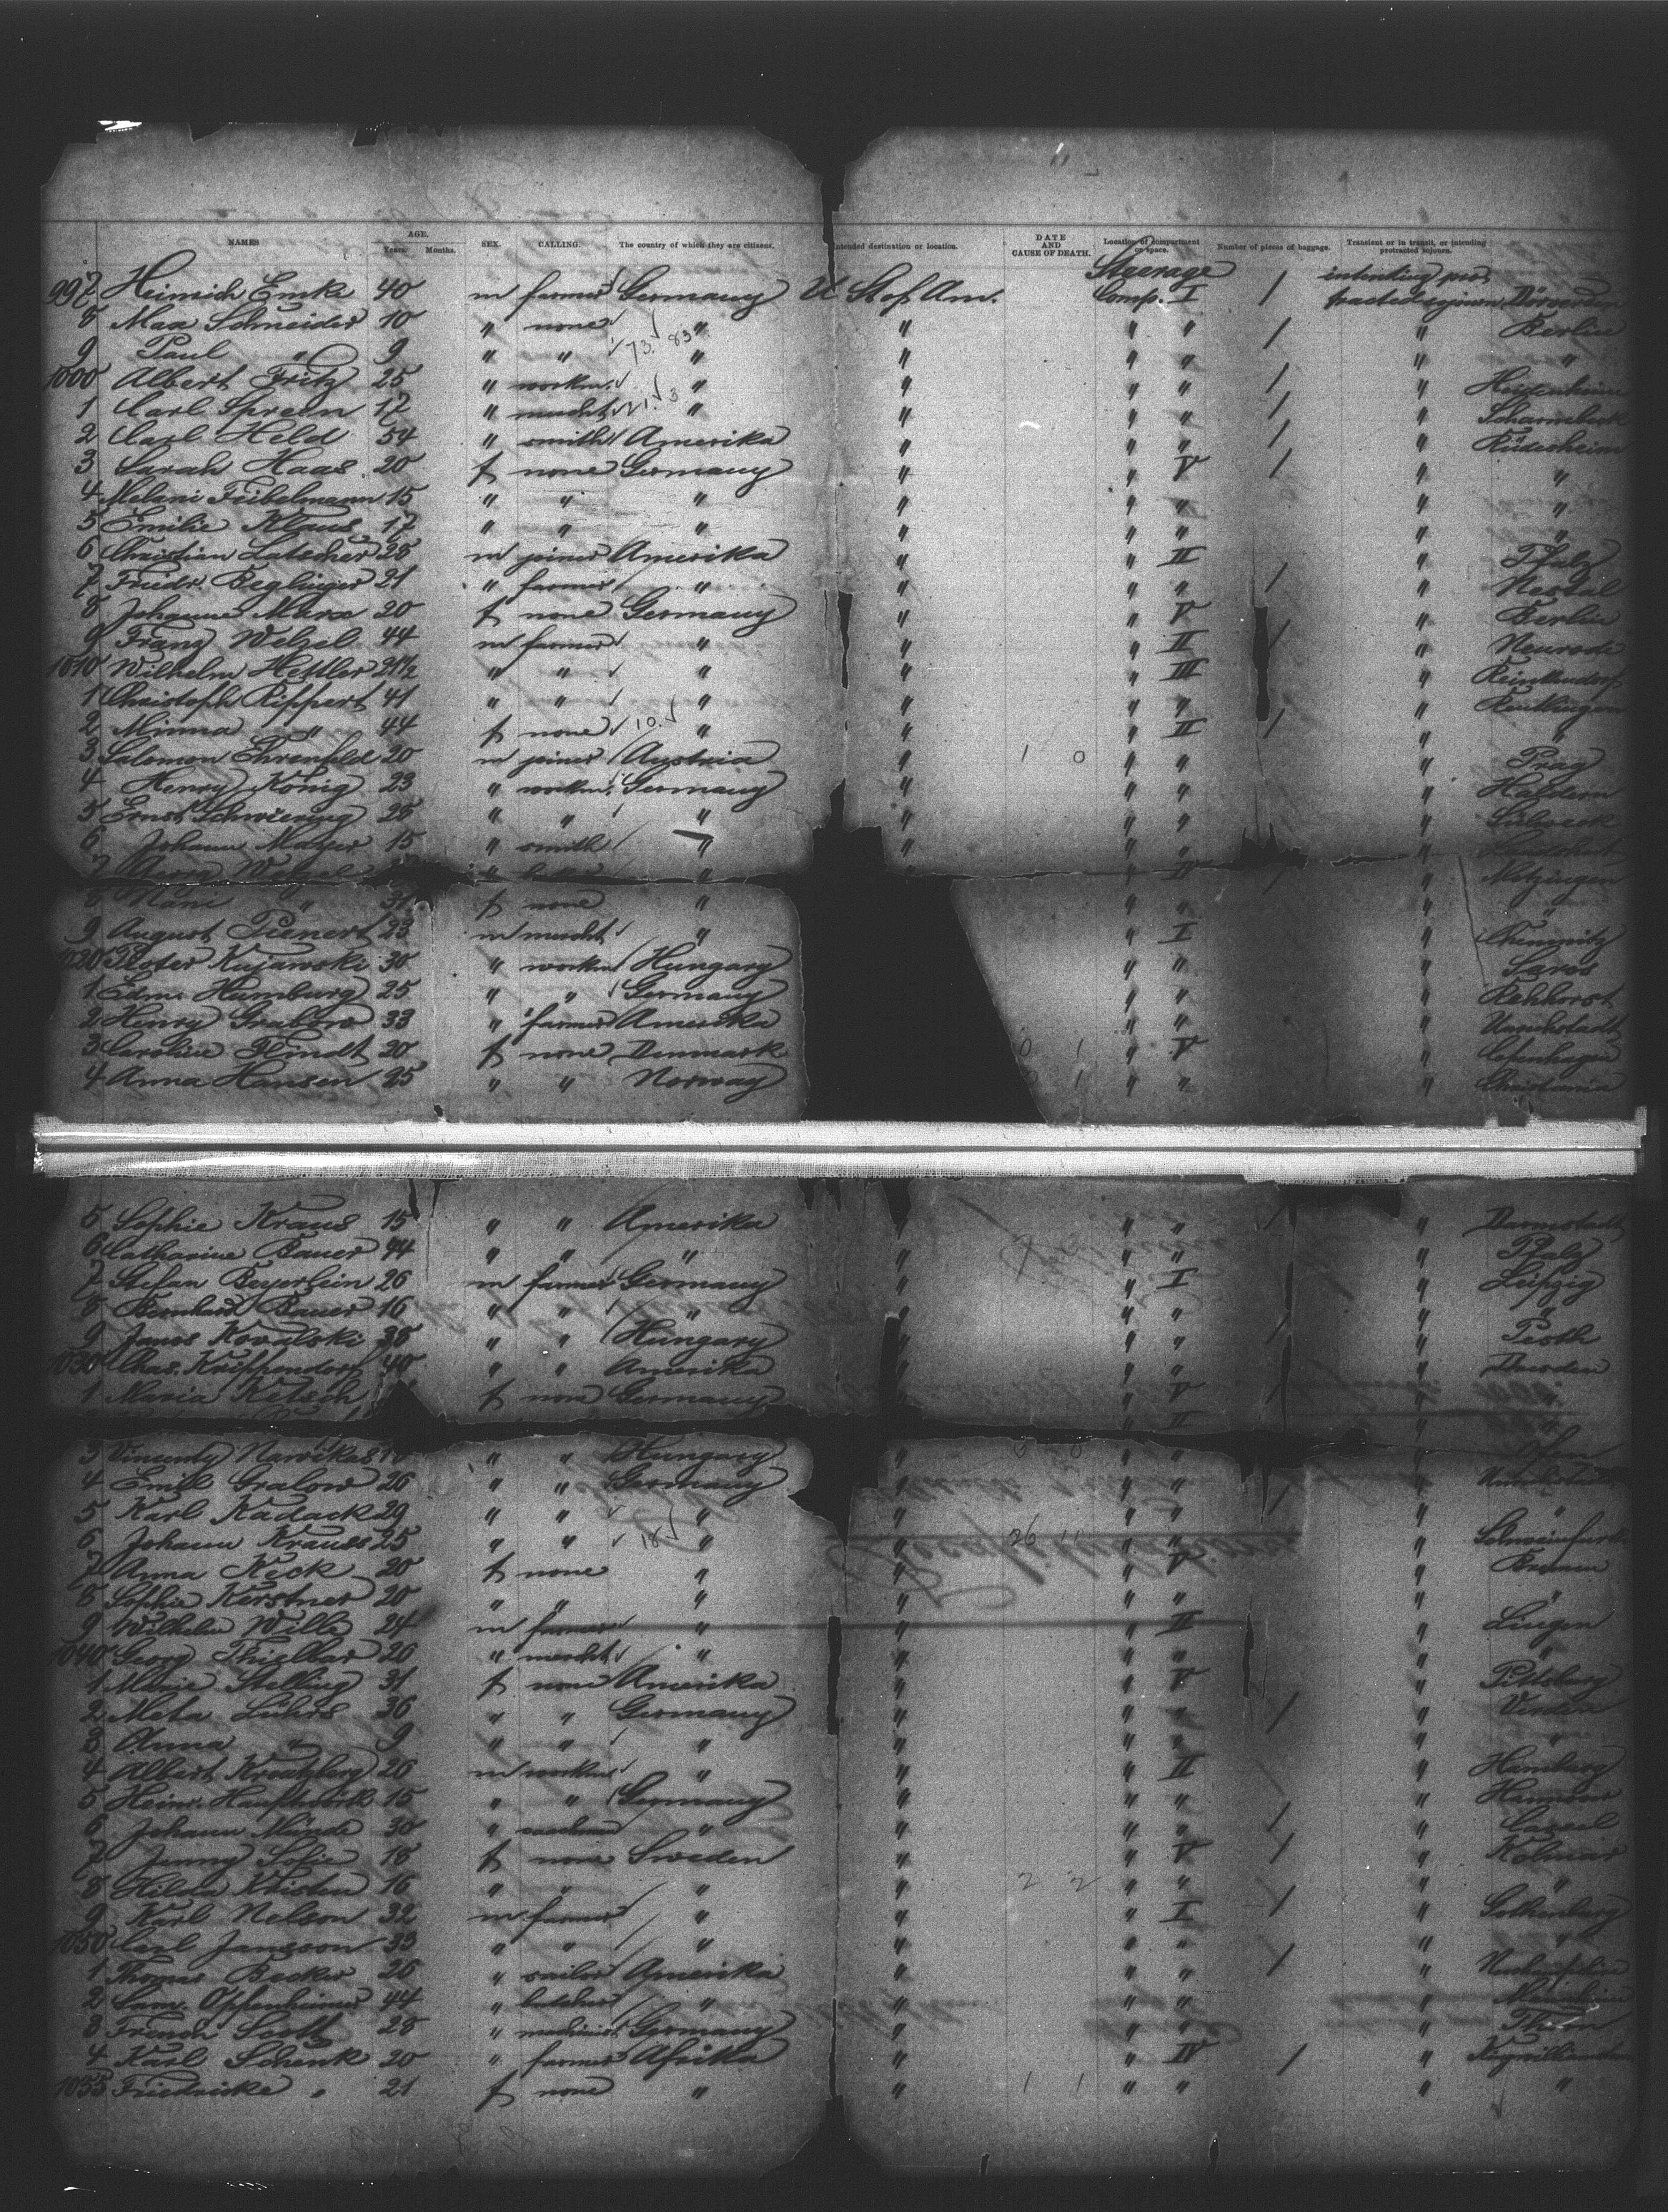 NAMES AGE. Years. Months. SEX. CALLING. The country of which they are citizens. Intended destination or location. DATE AND CAUSE OF DEATH. Location of compartment or space. Number of pieces of baggage. Transient or in transit, or intending protracted sojourn.
997 Heinrich Emke 40 m farmer Germany U St of Am. Steerage Comp. I / intending protracted sojourn
8 Max Schneider 10 " none " " " " / " Berlin
9 Paul " 9 " " 73. 83 " " " " " "
1000 Albert Fritz 25 " workm. " " " " / " Heidenheim
1 Carl Spreen 17 " mercht 21. 3 " " " " / "
2 Carl Held 54 " smith Amerika " " " / " Rüdesheim
3 Sarah Haas 20 f none Germany " " V / " "
4 Melani Feibelmann 15 " " " " " " " "
5 Emilie Klaus 17 " " " " " " " "
6 Christian Latscher 28 m joiner Amerika " " II " Pfalz
7 Friedr. Beglinger 21 " farmer " " " " / " Nestal
8 Johanne Marx 20 f none Germany " " V " Berlin
9 Franz Welzel 44 m farmer " " " II / " Neurode
1010 Wilhelm Hettler 21½ " " " " " III "
1 Christoph Rippert 41 " " " " " " " Reutlingen
2 Minna " 44 f none 10. " " " II / " "
3 Salomon Ehrenfeld 20 m joiner Austria " 1 0 " " " Prag
4 Henry König 23 " workm. Germany " " " " Haldern
5 Ernst Schwiering 25 " " " " " " "
6 Johann Mayer 15 " smith " " " " "
7 Georg Wenzel " " " " IV / " Metzingen
8 Nani " 31 f none " " " " "
9 August Pienert 23 m mercht " " I " Chemnitz
1020 Peter Kujawski 30 " workm Hungary " " " Saros
1 Edm. Humburg 25 " " Germany " " " Rehhorst
2 Henry Grabow 33 " farmer Amerika " " "
3 Caroline Flindt 20 f none Denmark 0 1 " V " Copenhagen
4 Anna Hansen 25 " " Norway 1 " " " Christiania
5 Sophie Kraus 15 " " Amerika " " " / " Darmstadt
6 Catharine Bauer 44 " " " " " " " Pfalz
7 Stefan Beyerlein 26 m farmer Germany " " I " Leipzig
8 Bernhard Bauer 16 " " " " " " " "
9 Janos Kovalski 38 " " Hungary " " " / " Pesth
1030 Chas. Krippendorf 40 " " Amerika " " " " Dresden
1 Maria Ketsch f none Germany " " V / "
" II " "
3 Vincenty Narvikas " " Hungary " " " " Ofen
4 Emil Gralow 26 " " Germany " " " / "
5 Karl Kadack 29 " " " " " " " "
6 Johann Krauss 25 " " 18 " " 26 11 " " " Schweinfurt
7 Anna Keck 20 f none " " " V " Bremen
8 Sophie Kerstner 20 " " " " " " " "
9 Wilhelm Wille 24 m farmer " " " II " Lingen
1040 Georg Thielbar 20 " mercht " " " " " "
1 Marie Stelling 31 f none Amerika " " V " Pittsburg
2 Meta Lührs 36 " " Germany " " " / "
3 Anna " 9 " " " " " " " "
4 Albert Kreutzberg 26 m workm " " " II " Hamburg
5 Heinr. 15 " " Germany " " " / " Hannover
6 Johann Münde 30 " " " " " / " Cassel
7 Jenny Sofie 18 f none Sweden " " V / " Kolmar
8 Hilda Kristen 16 " " " " 2 2 " " " "
9 Karl Nelson 32 m farmer " " " I / " Gothenburg
1050 Carl Jansson 33 " " " " " " " "
1 Thomas Becker 26 " sailor Amerika " " " / "
2 Sam. Oppenheimer 44 " butcher " " " " "
3 French Scott 28 " machinist Germany " " " " Thorn
4 Karl Schenk 20 " farmer Afrika " " IV / "
1055 Friedricke " 21 f none " " 1 1 " " " "